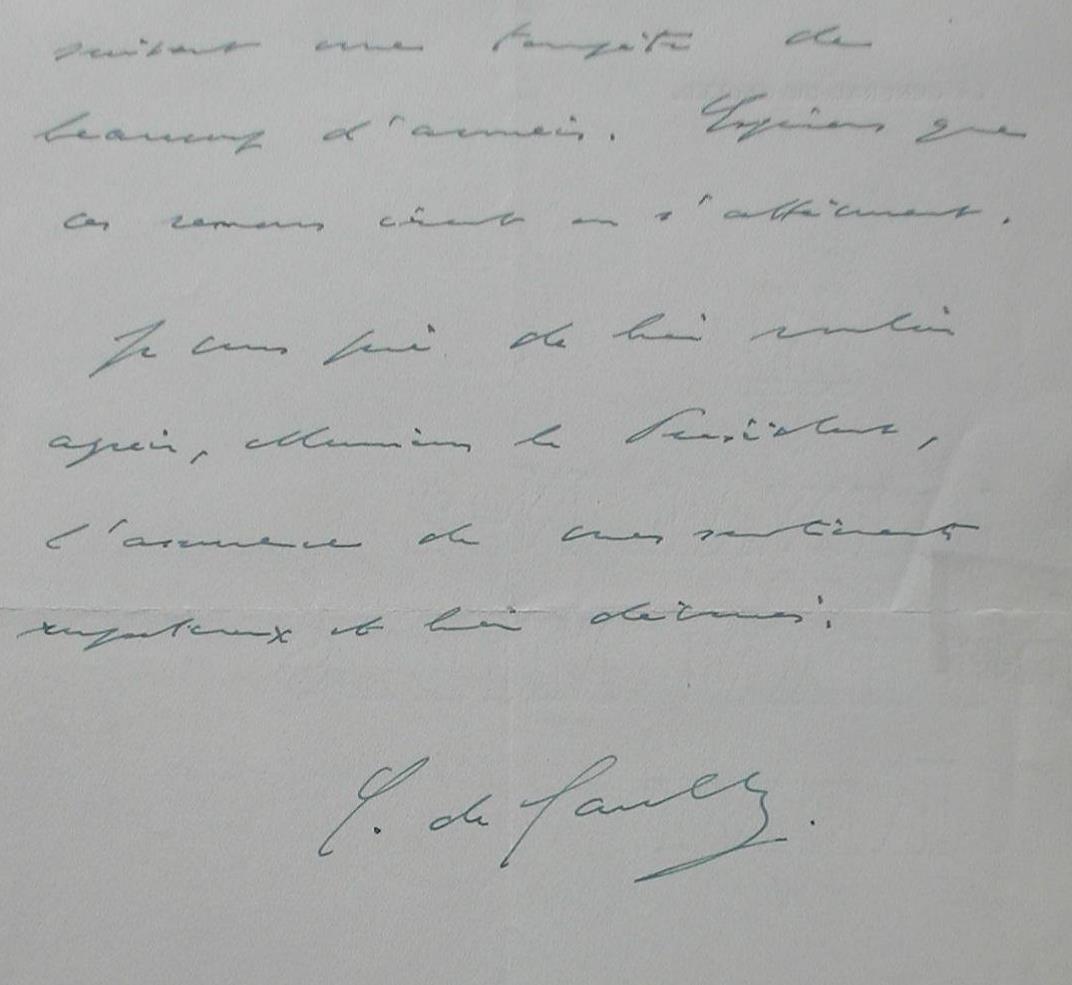 suivant une tempête de
beaucoup d'années. Espérons que
ces remous iront en s'atténuant.
Je vous prie de bien vouloir
agréer, Monsieur le Président,
l'assurance de mes sentiments
respectueux et bien dévoués.
C. de Gaulle.